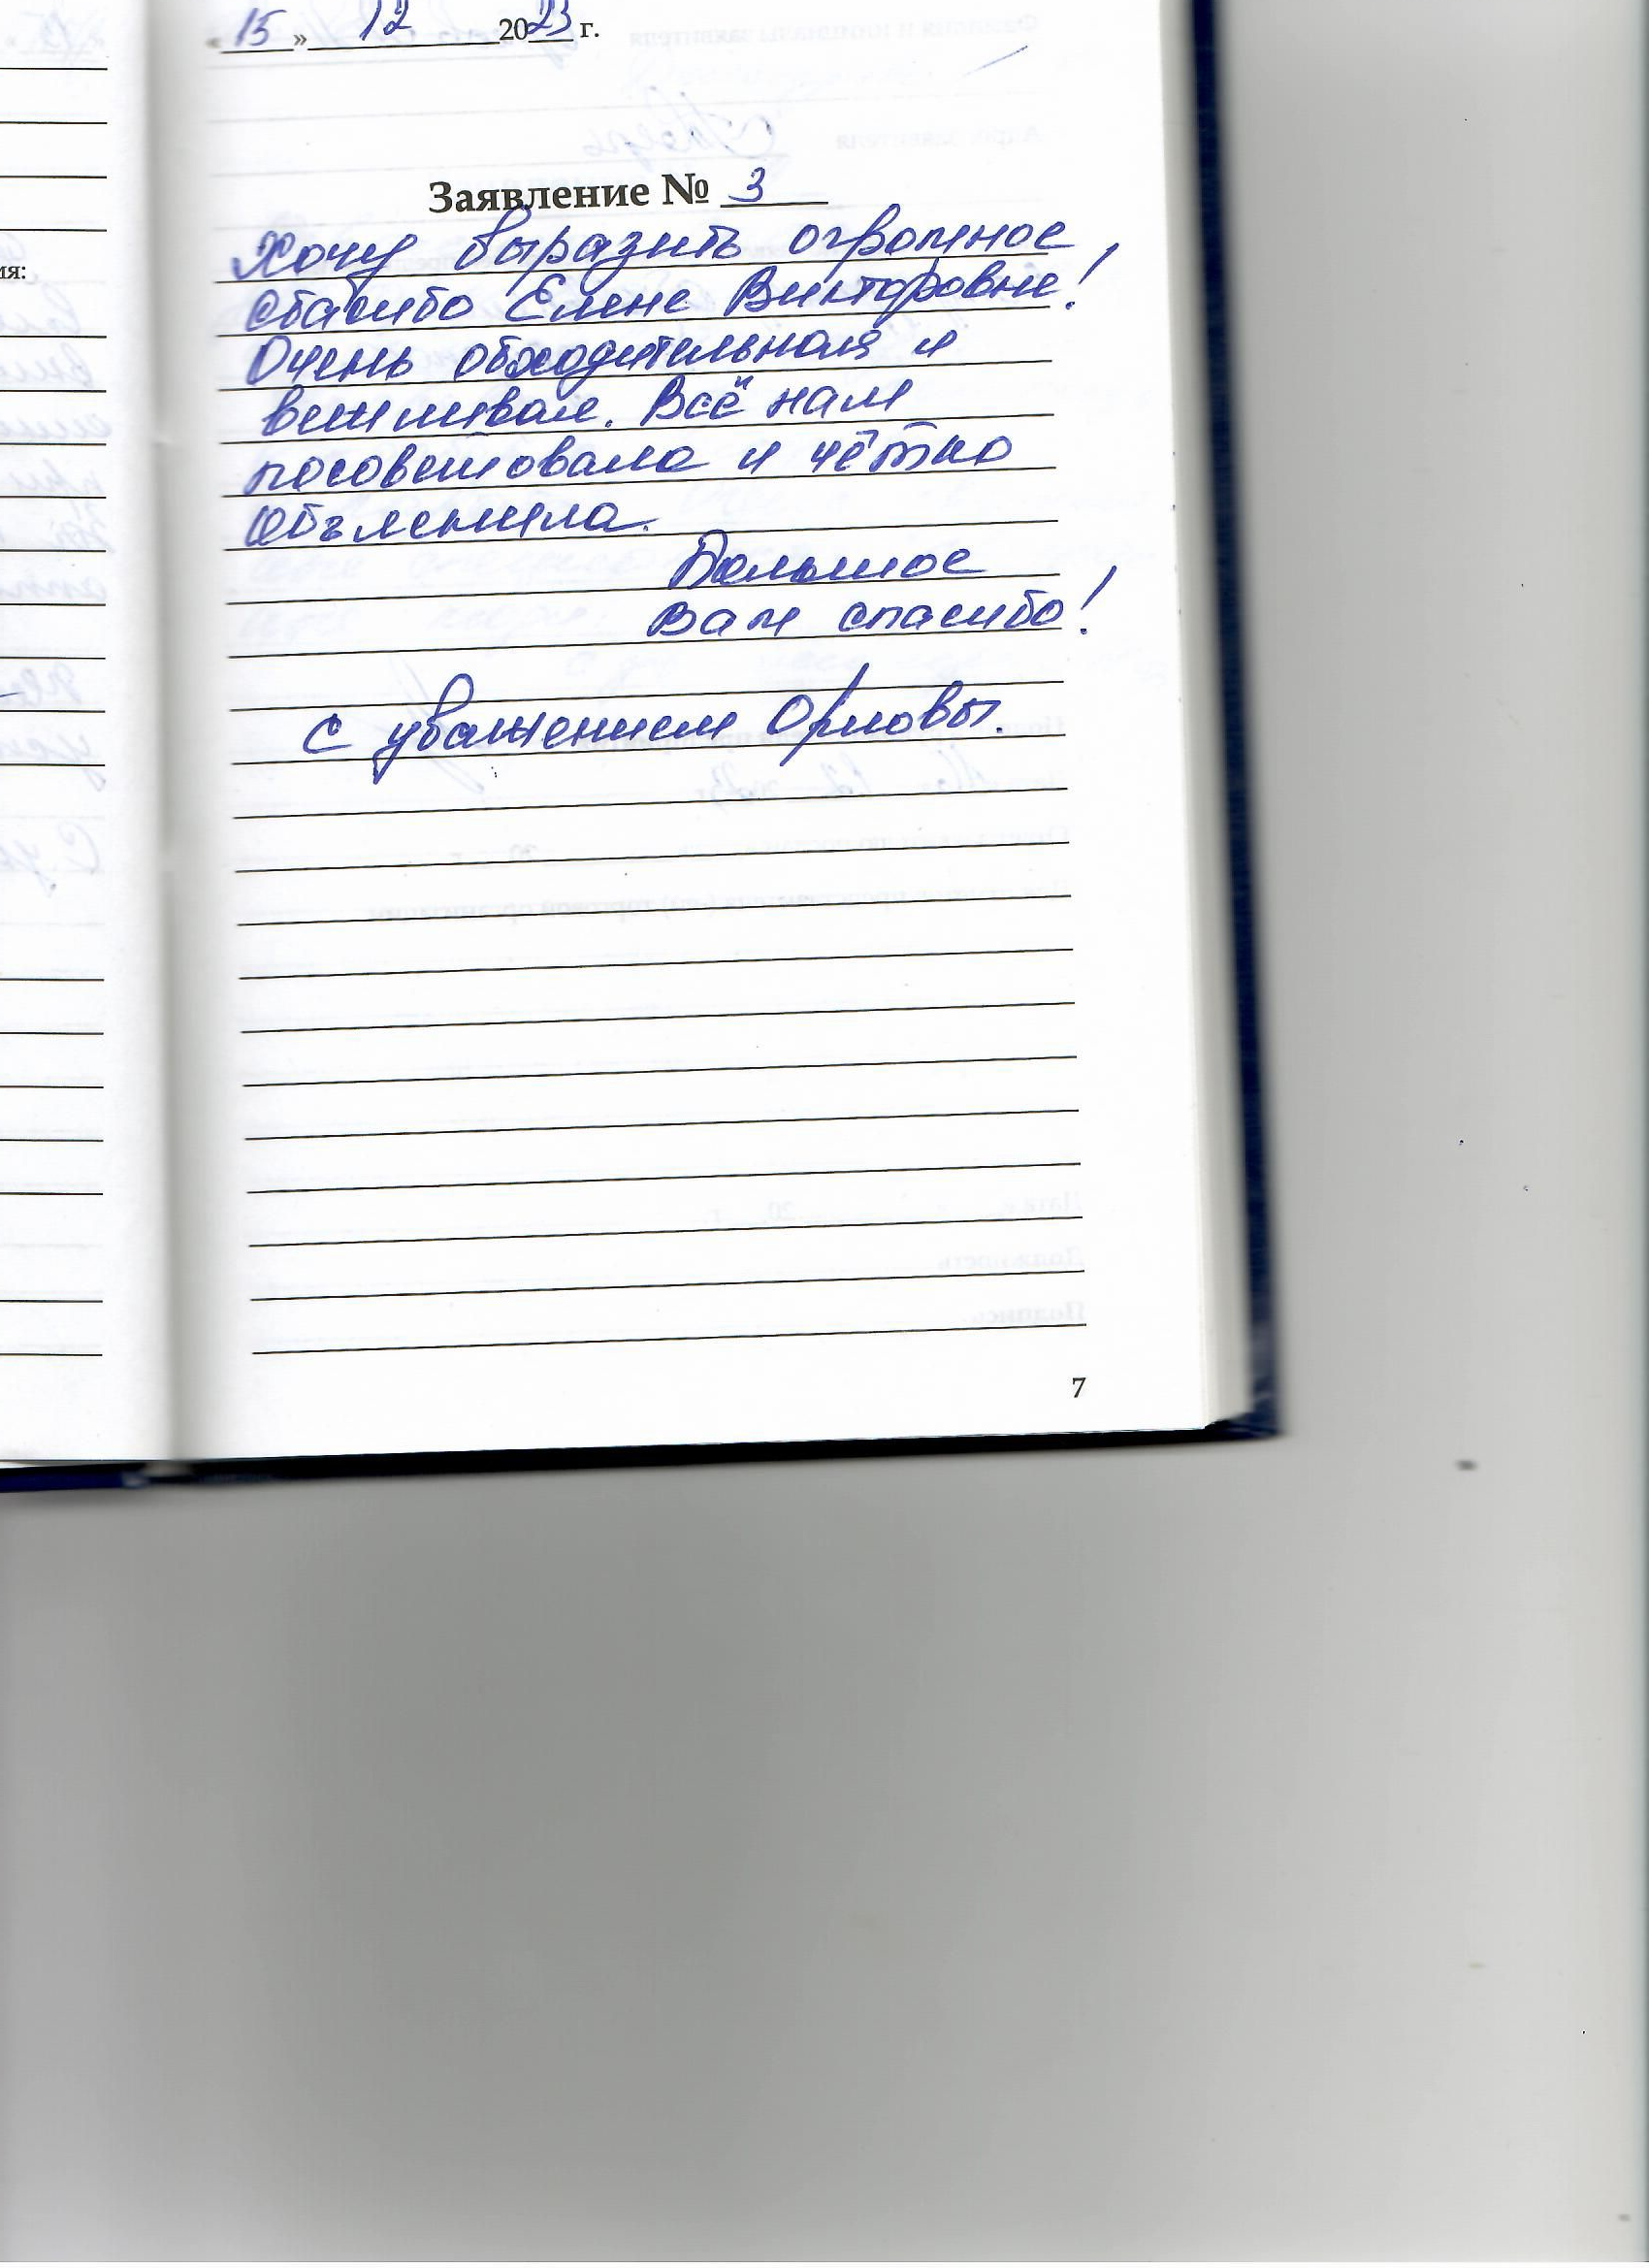 «15» 12 2023 г.
Заявление № 3
Хочу выразить огромное
спасибо Елене Викторовне!
Очень обходительная и
вежливая. Всё нам
посоветовала и чётко
объяснила.
Большое
Вам спасибо!
С уважением Орловы.
ия:
7